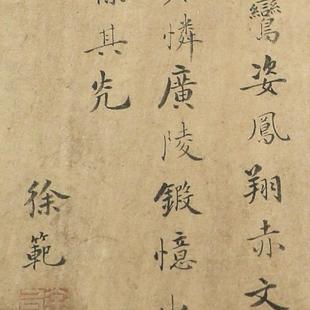 鸞姿鳳翔赤文
憐廣陵鍛憶
其光
徐範